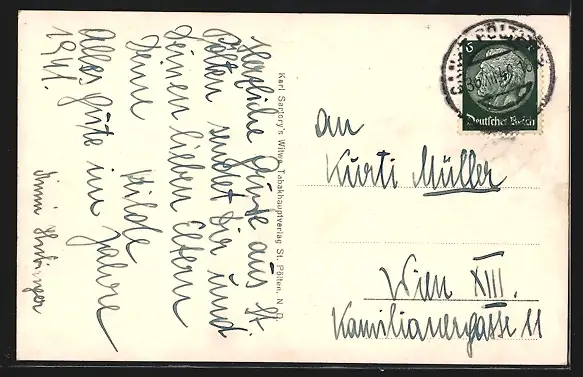 Herzliche Grüße aus St.
Pölten sendet Dir und
Deinen lieben Eltern
Deine
Hilde
Alles Gute im Jahre
1941.
Karl Sartory's Witwe, Tabakhauptverlag St. Pölten, N.
ST. PÖLTEN
6
Deutsches Reich
An
Kurti Müller
Wien XIII.
Kamillianergasse 11